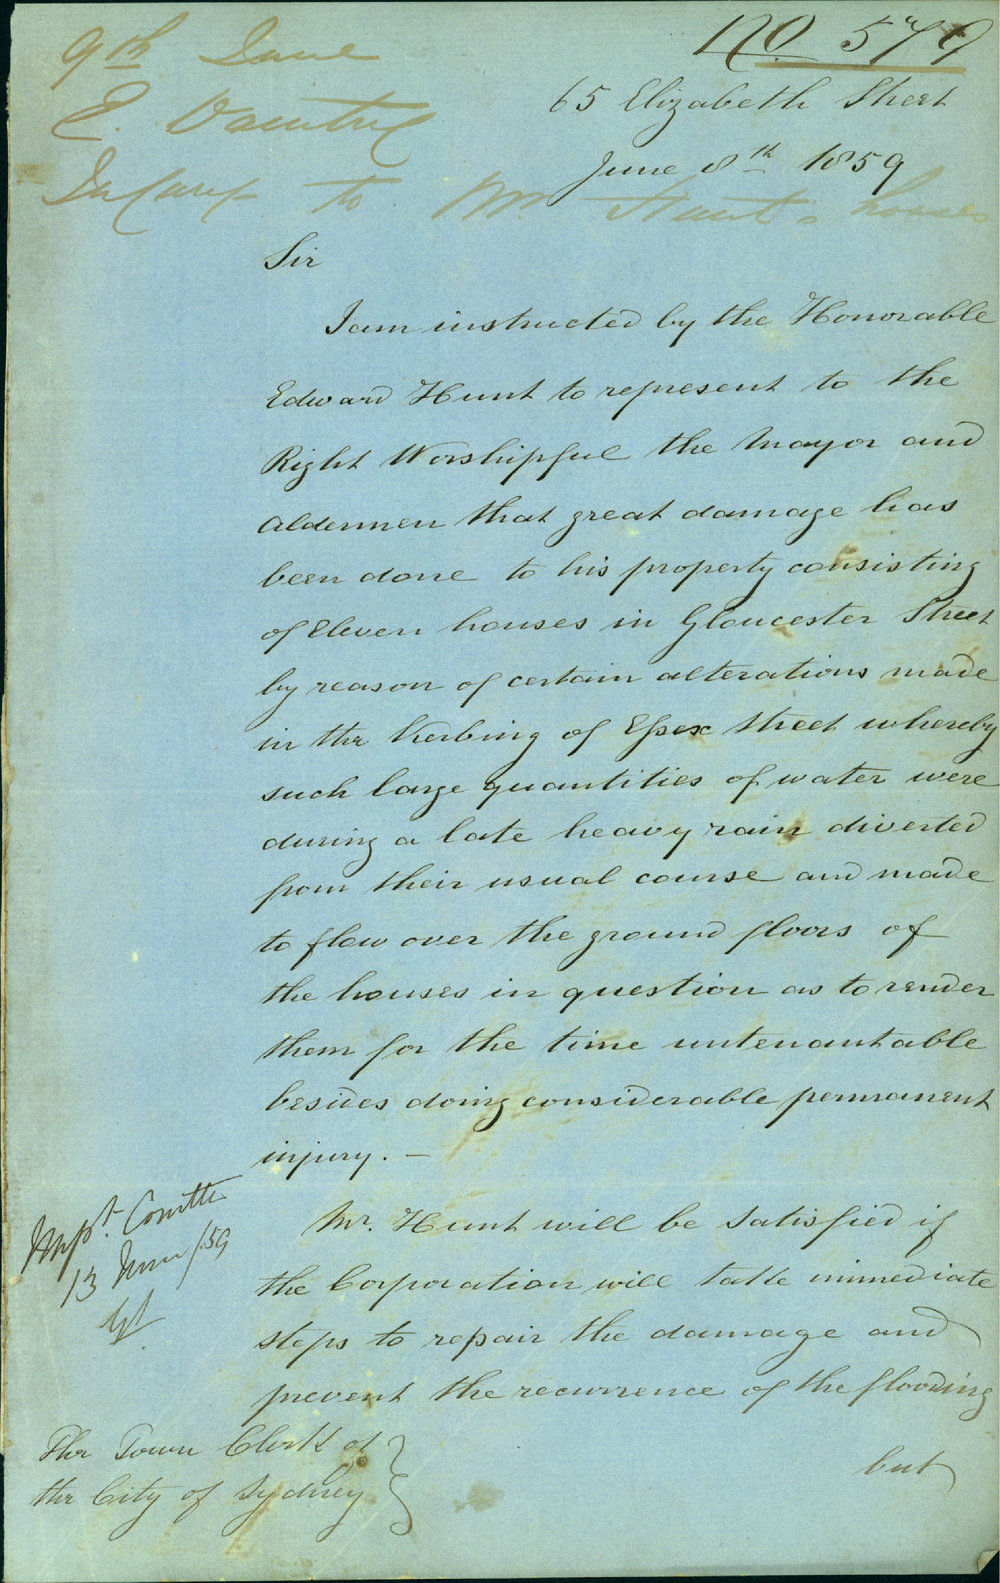 No 579
9th June
E. Daintrey
Injury to Mr. Hunt's houses
65 Elizabeth Street
June 8th 1859
Sir
I am instructed by the Honorable
Edward Hunt to represent to the
Right Worshipful the Mayor and
Aldermen that great damage has
been done to his property consisting
of Eleven houses in Gloucester Street
by reason of certain alterations made
in the Kerbing of Essex Street whereby
such large quantities of water were
during a late heavy rain diverted
from their usual course and made
to flow over the ground floors of
the houses in question as to render
them for the time untenantable
besides doing considerable permanent
injury. –
Mr. Hunt will be satisfied if
the Corporation will take immediate
steps to repair the damage and
prevent the recurrence of the flooding
but
Impt. Comttee
13 June /59
The Town Clerk of
the City of Sydney